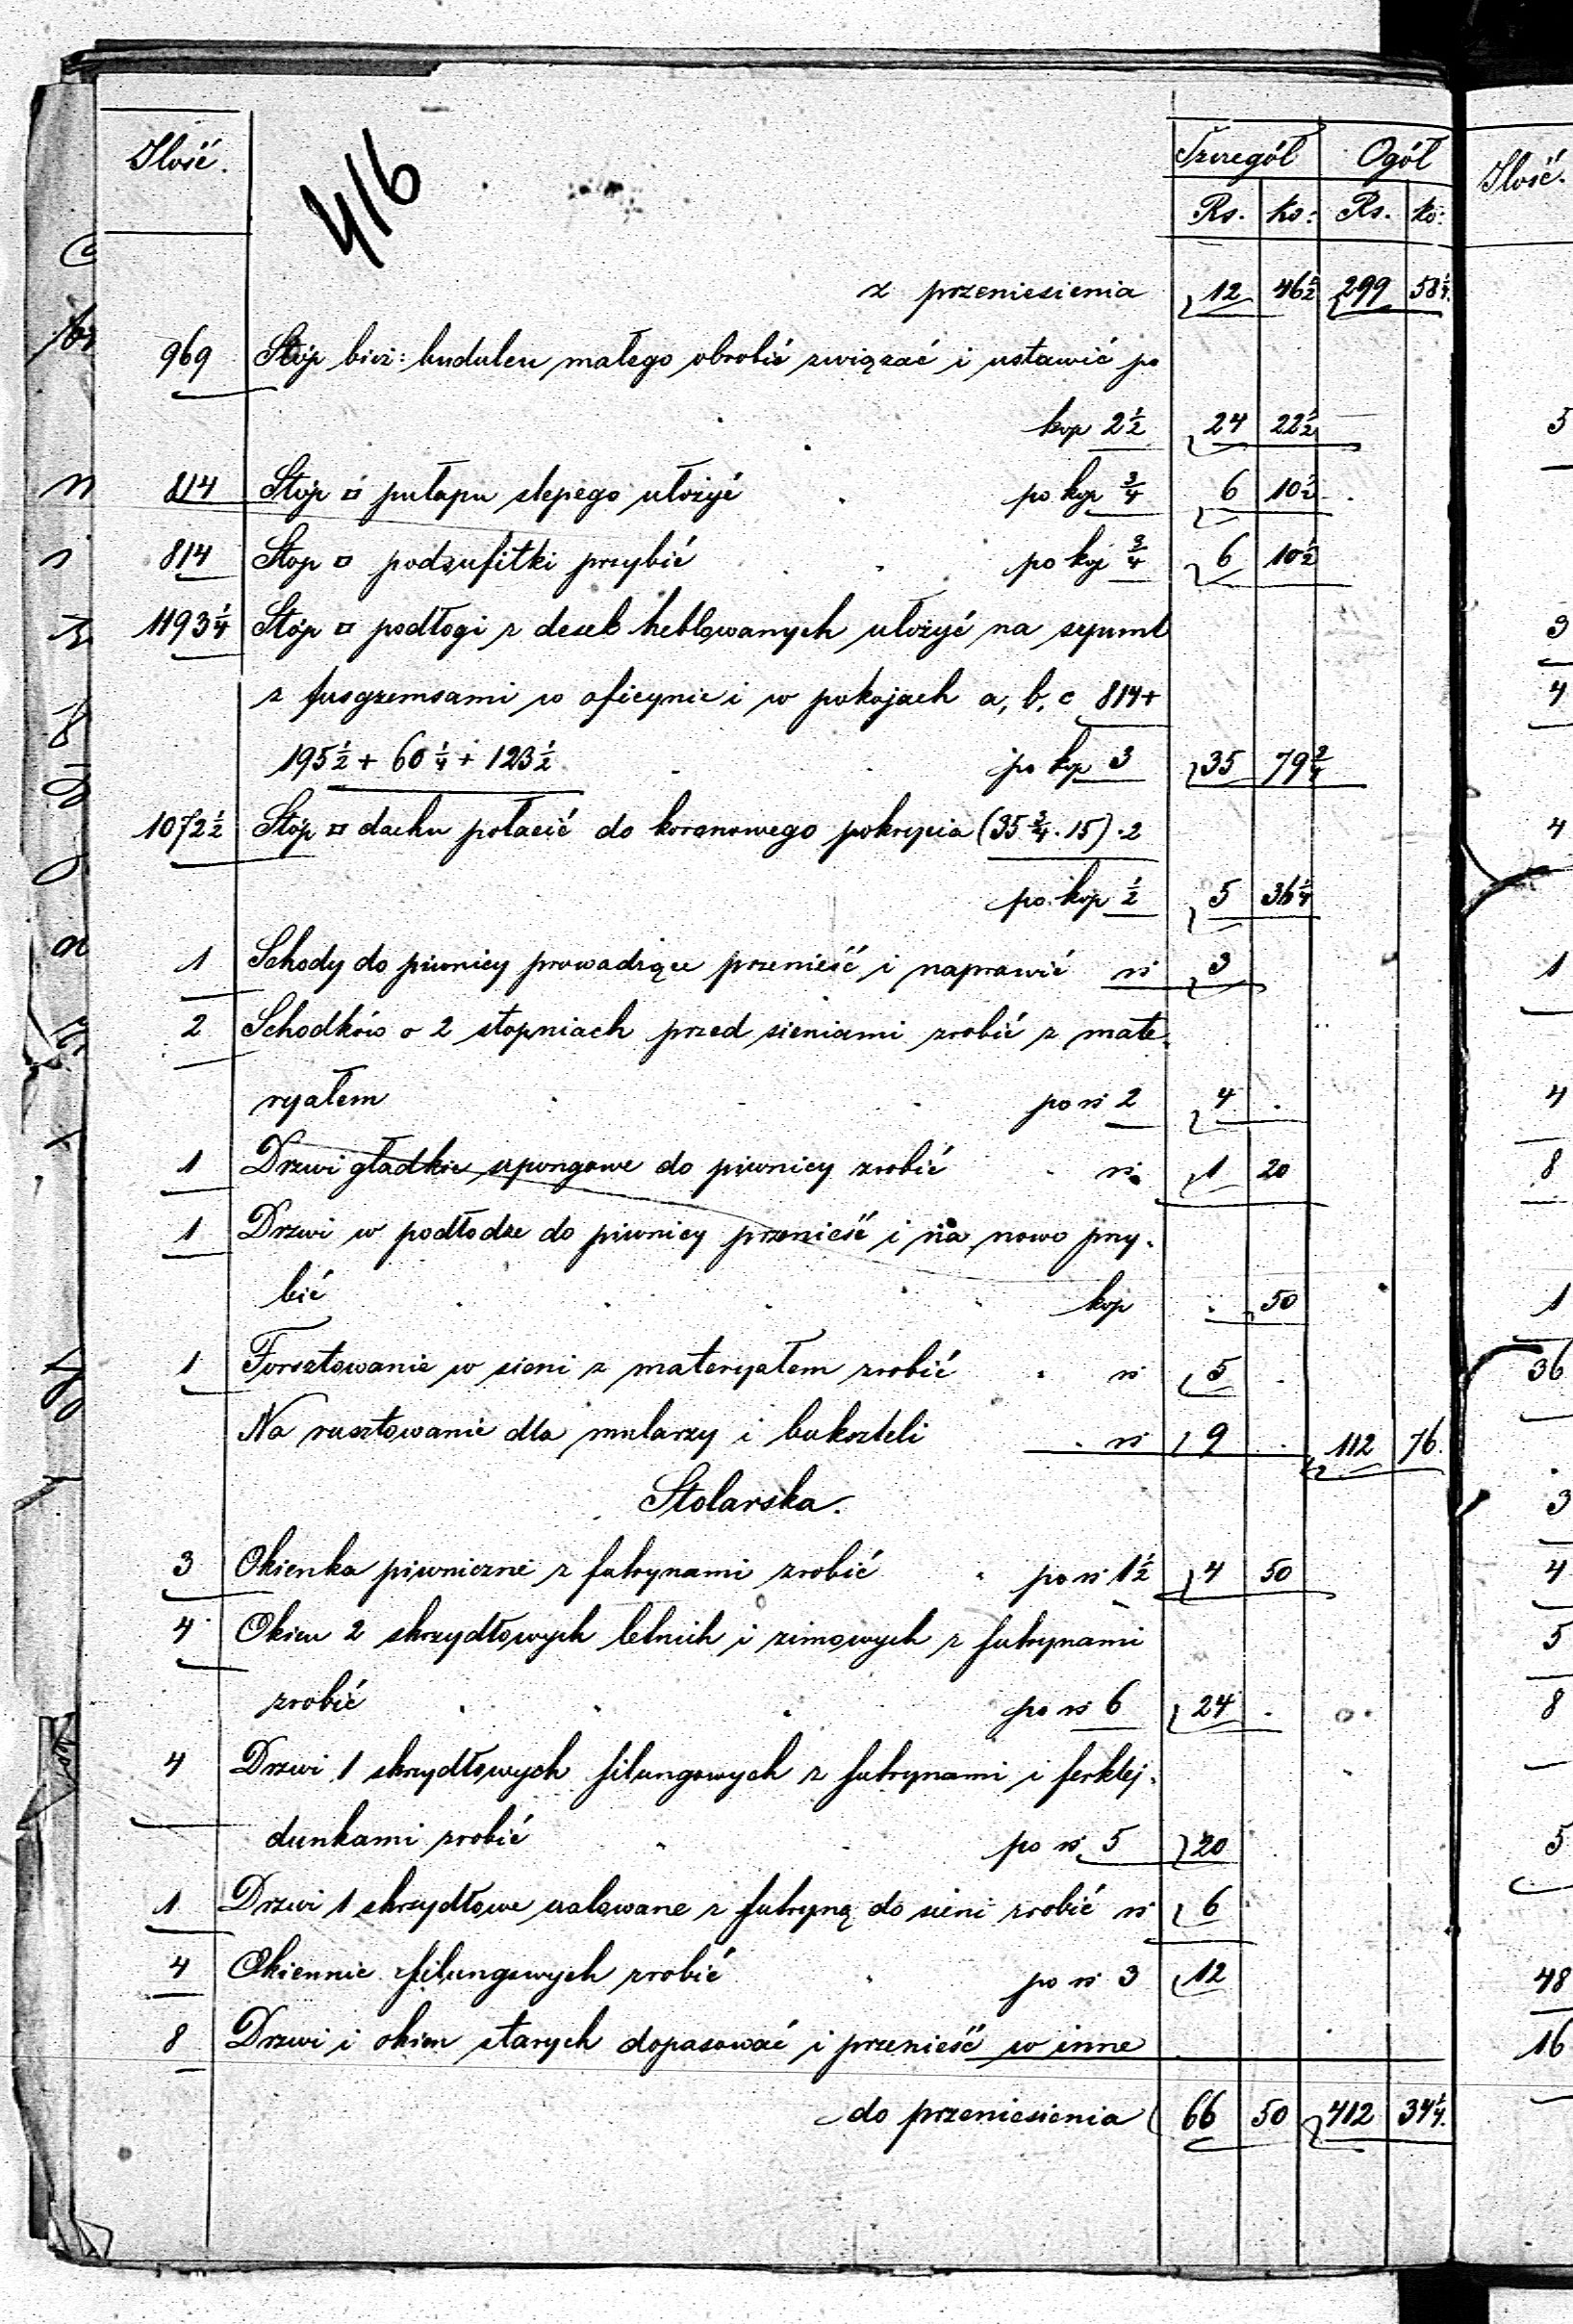 416
Ilość. Szczegół Ogół
Rs. ko: Rs. ko:
z przeniesienia 12 46½ 299 58¼
969 Stóp bież: budulcu małego obrobić związać i ustawić po
kop 2½ 24 22½
814 Stóp □ pułapu ślepego ułożyć po kop ¾ 6 10½
814 Stop □ podsufitki przybić po kop ¾ 6 10½
1193¼ Stóp □ podłogi z desek heblowanych ułożyć na szpunt
z fusgzemsami w oficynie i w pokojach a, b, c 814+
195½ + 60¼ + 123½ po kop 3 35 79¾
1072½ Stóp □ dachu połacić do koranowego pokrycia (35¾ · 15) · 2
po kop ½ 5 36¼
1 Schody do piwnicy prowadzące przenieść i naprawić rs 3
2 Schodków o 2 stopniach przed sieniami zrobić z mate-
ryałem po rs 2 4 .
1 Drzwi gładkie szpongowe do piwnicy zrobić rs 1 20
1 Drzwi w podłodze do piwnicy przenieść i na nowo przy-
bić kop . 50
1 Forsztowanie w sieni z materyałem zrobić rs 5 .
Na rusztowanie dla mularzy i buksteli rs 9 . 112 76.
Stolarska.
3 Okienka piwniczne z futrynami zrobić po rs 1½ 4 50
4 Okien 2 skrzydłowych letnich i zimowych z futrynami
zrobić po rs 6 24 .
4 Drzwi 1 skrzydłowych filungowych z futrynami i ferklej-
dunkami zrobić po rs 5 20
1 Drzwi 1 skrzydłowe szalowane z futryną do sieni zrobić rs 6
4 Okiennic filungowych zrobić po rs 3 12
8 Drzwi i okien starych dopasować i przenieść w inne
do przeniesienia 66 50 412 34¼.
Ilość.
5
3
4
4
1
4
8
1
36
3
4
5
8
5
48
16